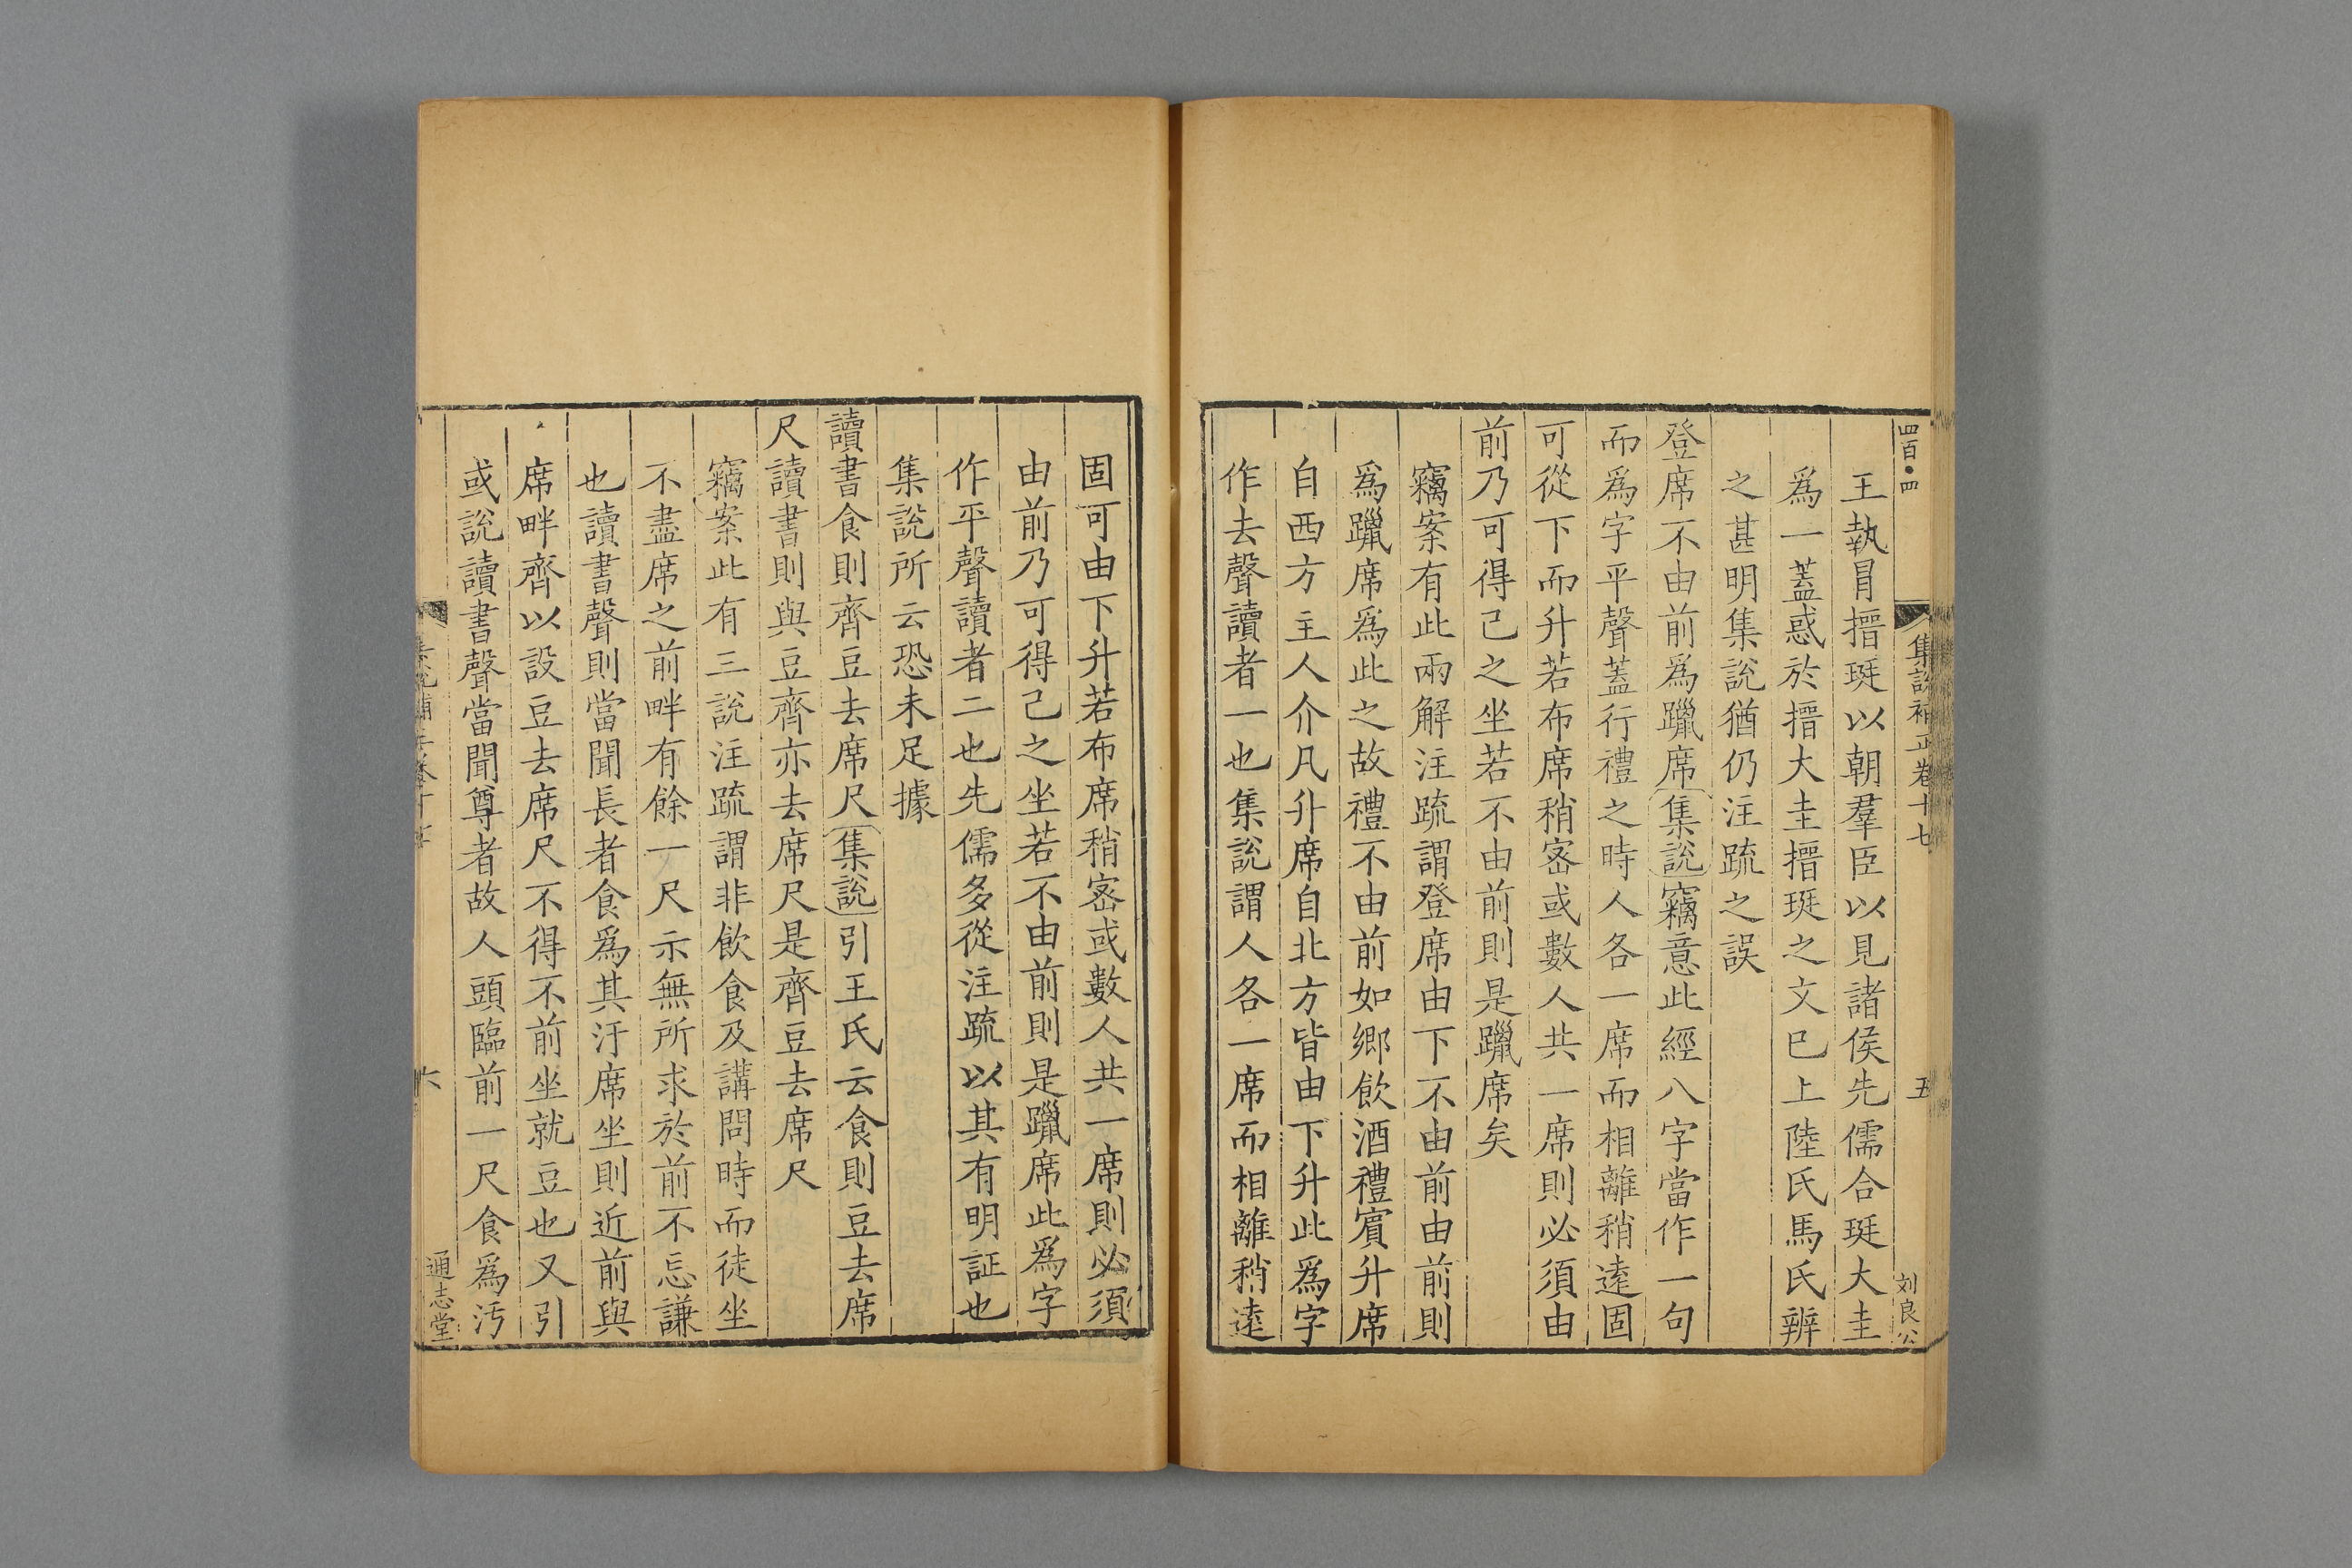 四百四
集說補正卷十七
五
刘良公
王執冒搢珽以朝羣臣以見諸侯先儒合珽大圭
爲一蓋惑於搢大圭搢珽之文巳上陸氏馬氏辨
之甚明集說猶仍注疏之誤
登席不由前爲躐席集說竊意此經八字當作一句
而爲字平聲蓋行禮之時人各一席而相離稍遠固
可從下而升若布席稍宻或數人共一席則必須由
前乃可得己之坐若不由前則是躐席矣
竊案有此兩解注疏謂登席由下不由前由前則
爲躐席爲此之故禮不由前如鄉飲酒禮賓升席
自西方主人介凡升席自北方皆由下升此爲字
作去聲讀者一也集說謂人各一席而相離稍遠
固可由下升若布席稍宻或數人共一席則必須
由前乃可得己之坐若不由前則是躐席此爲字
作平聲讀者二也先儒多從注疏以其有明証也
集說所云恐未足據
讀書食則齊豆去席尺集說引王氏云食則豆去席
尺讀書則與豆齊亦去席尺是齊豆去席尺
竊案此有三說注疏謂非飲食及講問時而徒坐
不盡席之前畔有餘一尺示無所求於前不忘謙
也讀書聲則當聞長者食爲其汙席坐則近前與
席畔齊以設豆去席尺不得不前坐就豆也又引
或說讀書聲當聞尊者故人頭臨前一尺食爲汚
六
通志堂